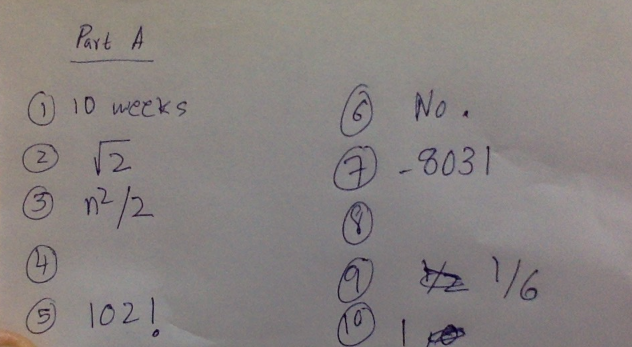 Part A
① 10 weeks
② √2
③ n²/2
④
⑤ 102!
⑥ No.
⑦ -8031
⑧
⑨ 1/6
⑩ 1